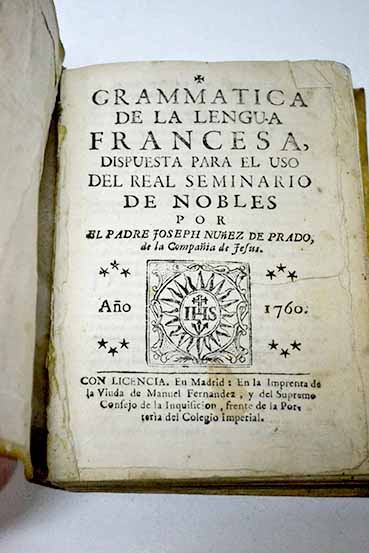 GRAMMATICA
DE LA LENGUA
FRANCESA,
DISPUESTA PARA EL USO
DEL REAL SEMINARIO
DE NOBLES
POR
EL PADRE JOSEPH NUñEZ DE PRADO,
de la Compañia de Jesus.
IHS
Año 1760.
CON LICENCIA. En Madrid: En la Imprenta de
la Viuda de Manuel Fernandez, y del Supremo
Consejo de la Inquisicion, frente de la Por-
teria del Colegio Imperial.